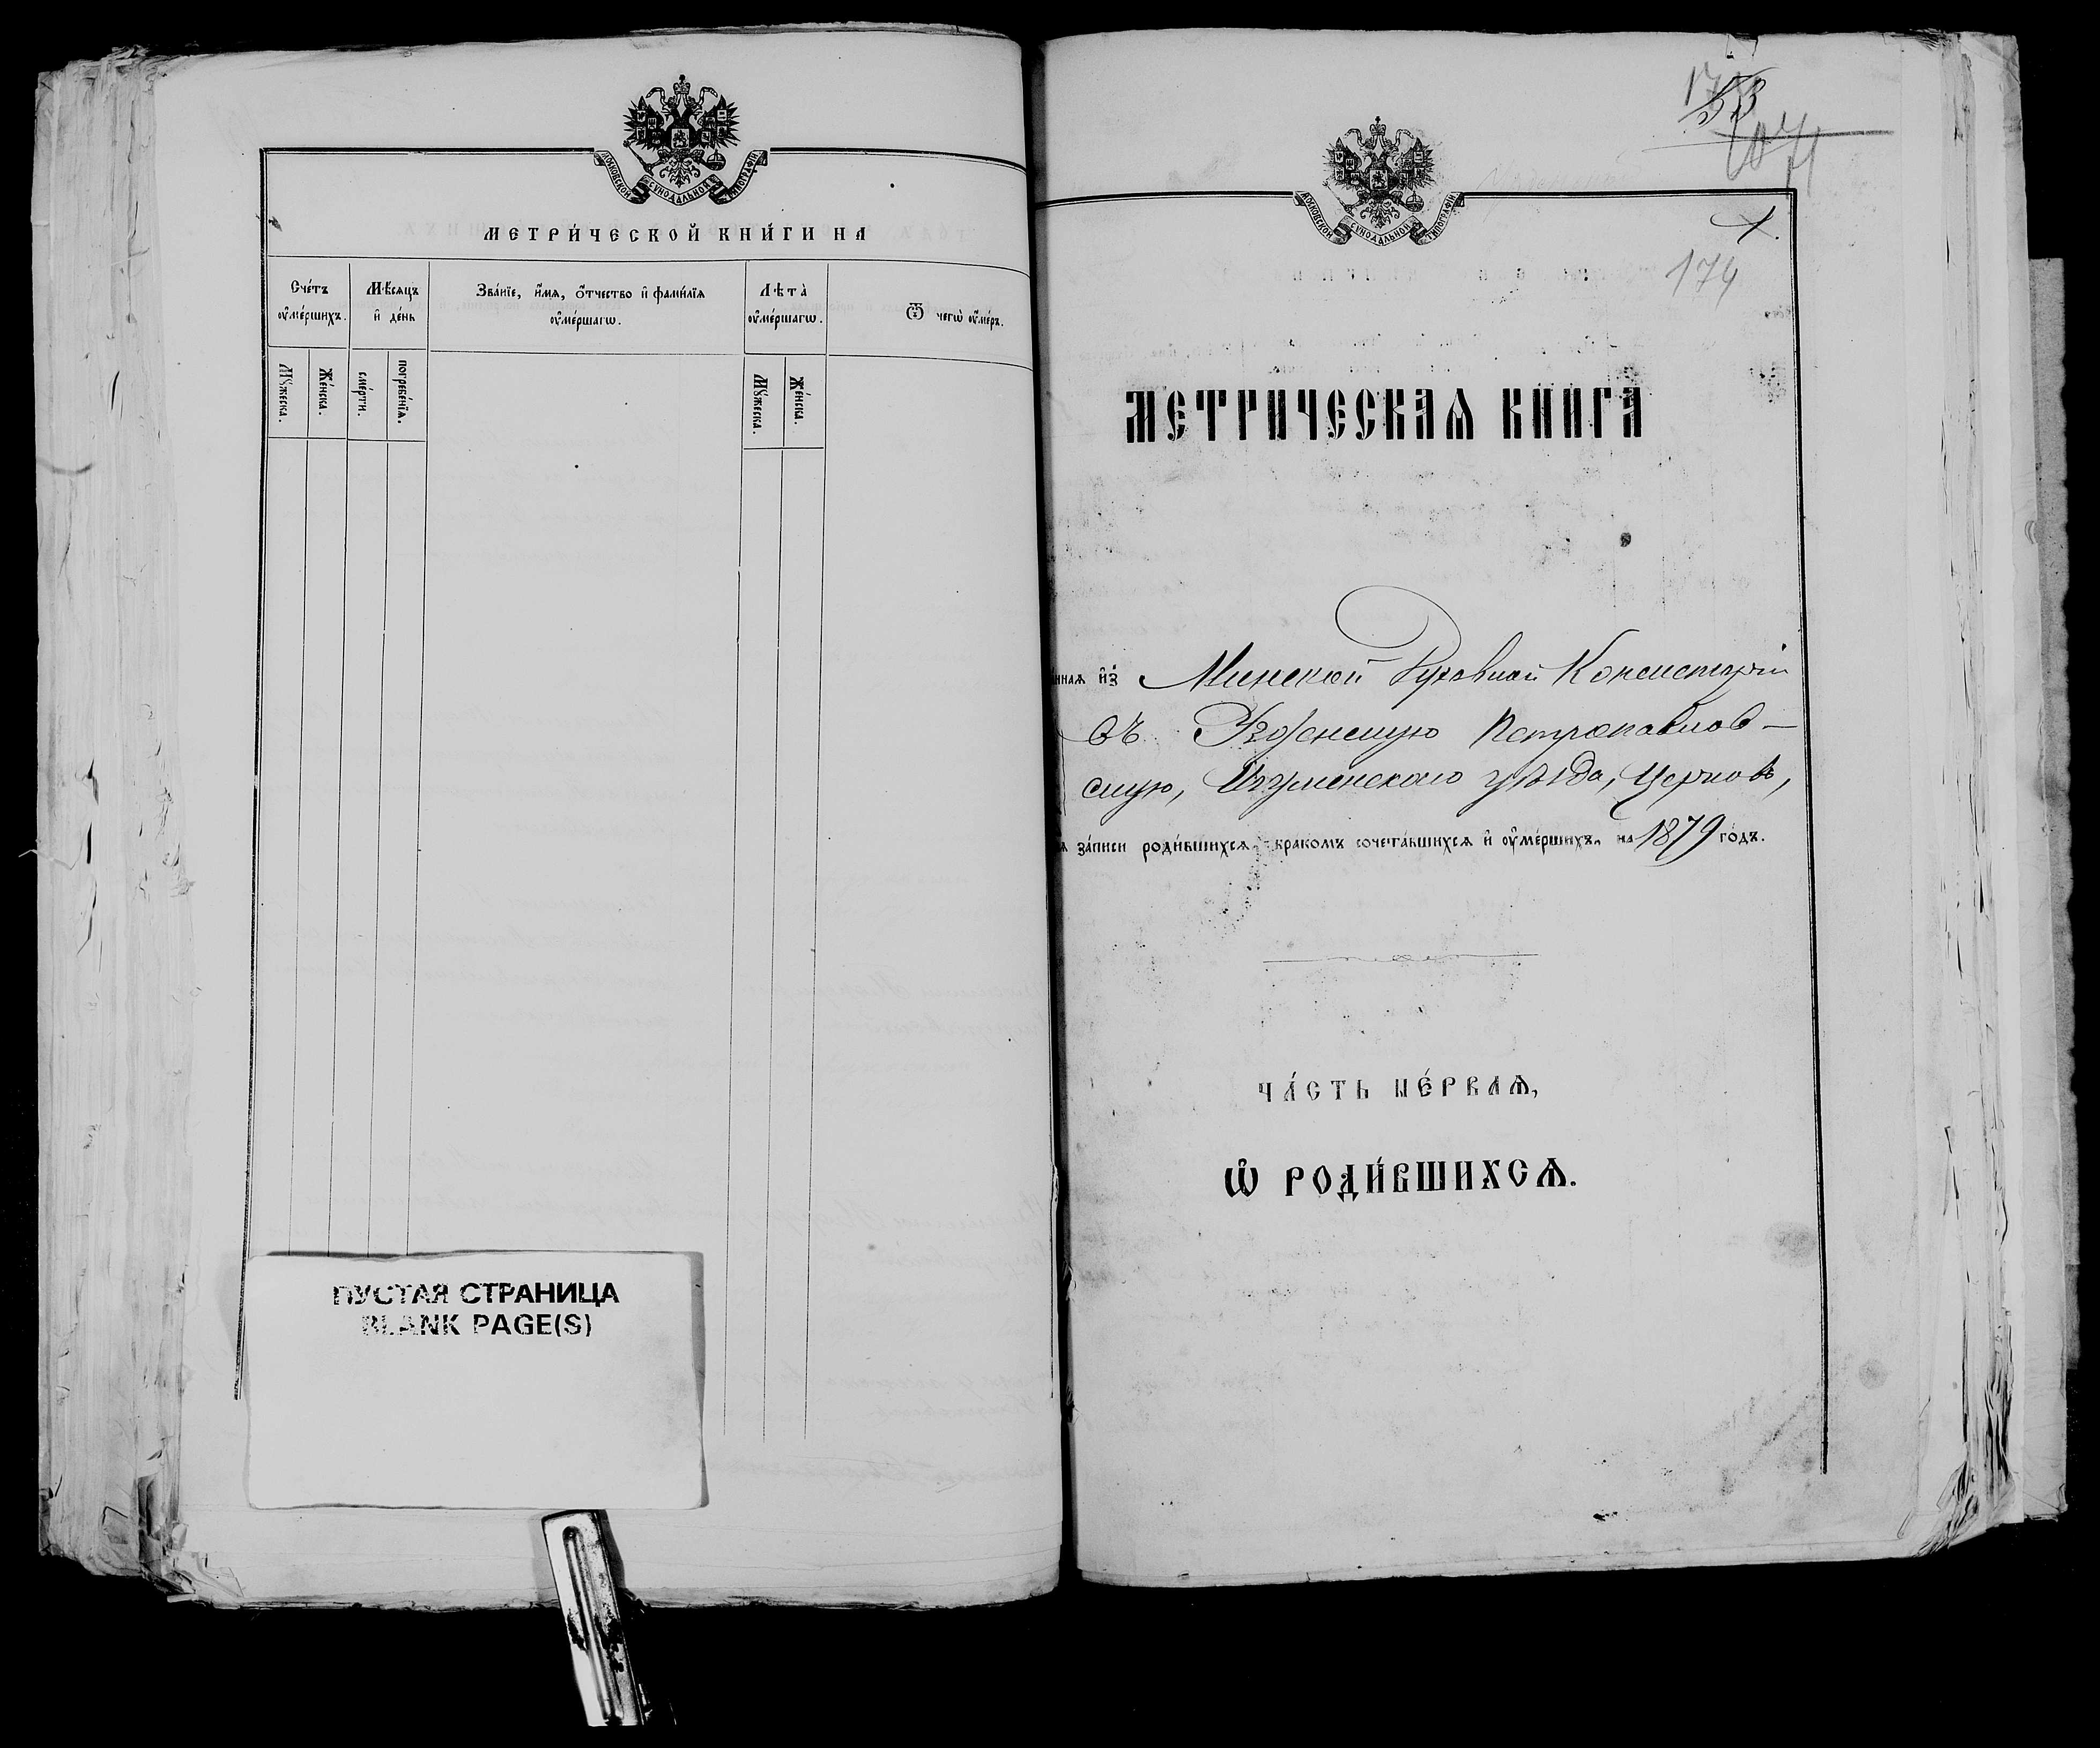 МОСКОВСКОЙ СѴНОДАЛЬНОЙ ТИПОГРАФІИ
МЕТРИ́ЧЕСКОЙ КНИ́ГИ НА
Сче́тъ ᲂу҆ме́ршихъ.
Мѣ́сяцъ и҆ де́нь
Зва́нїе, и҆́мѧ, ѻ҆́тчество и҆ фами́лїѧ ᲂу҆ме́ршагѡ.
Лѣ̀та̀ ᲂу҆ме́ршагѡ.
Ѿ чегѡ̀ ᲂу҆́меръ.
Мꙋ́жеска.
Же́нска.
сме́рти.
погребе́нїѧ.
Мꙋ́жеска.
Же́нска.
ПУСТАЯ СТРАНИЦА
BLANK PAGE(S)
53
174
МОСКОВСКОЙ СѴНОДАЛЬНОЙ ТИПОГРАФІИ
МЕТРИЧЕСКАѦ КНИГА
нная и҆з̾ Минской Духовной Консисторіи
въ Петропавлов-
скую, Игуменскаго уѣзда, Церковь,
за́писи роди́вшихсѧ, бракомъ сочета́вшихсѧ и҆ ᲂу҆ме́ршихъ, на 1879 го́дъ.
ЧА́СТЬ ПЕ́РВАѦ,
Ѽ РОДИ́ВШИХСѦ.